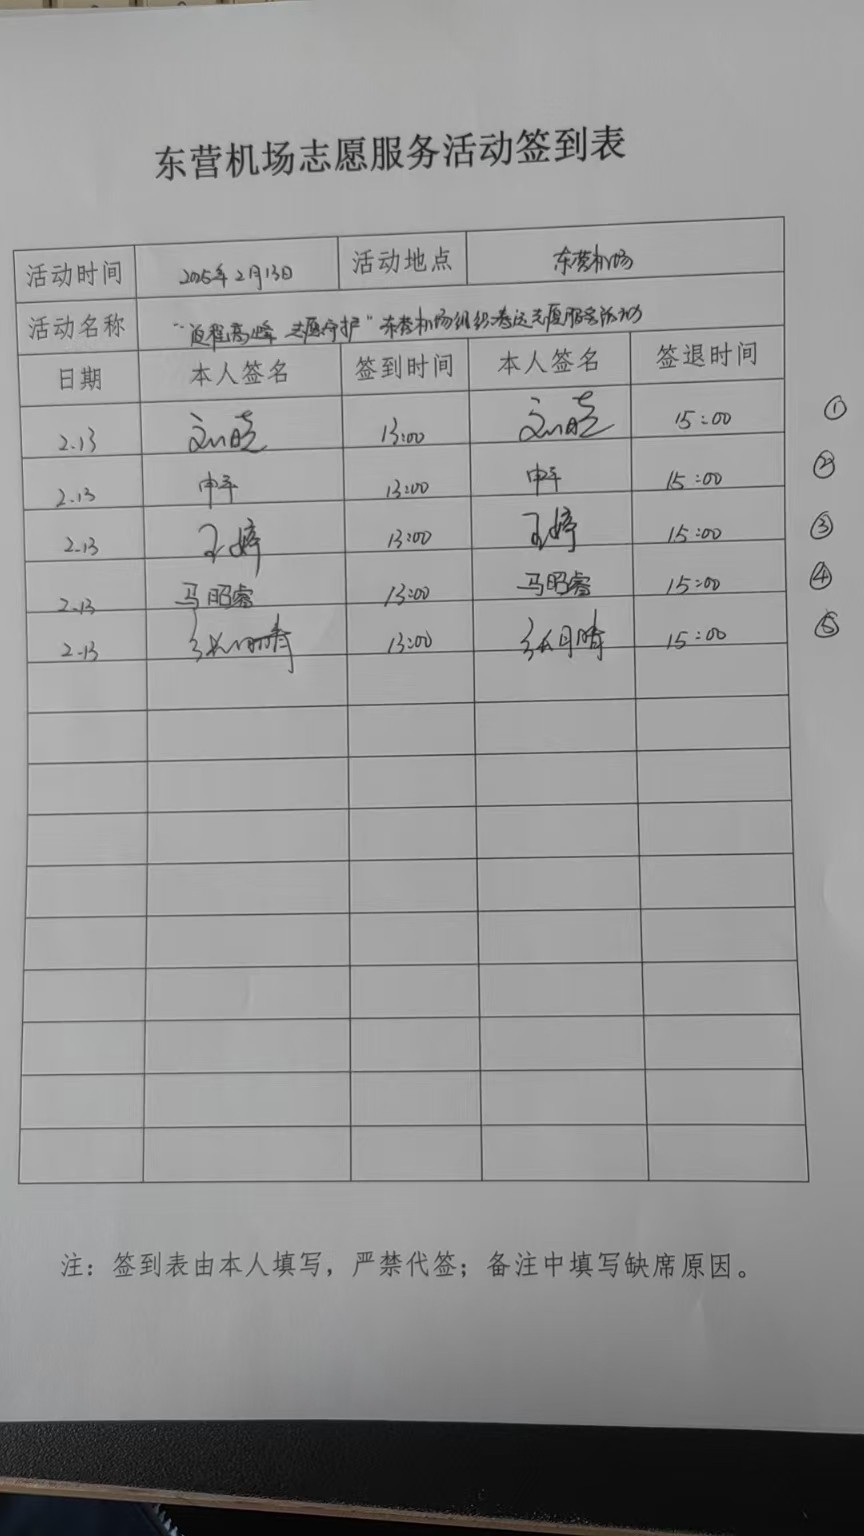 东营机场志愿服务活动签到表
活动时间 2025年2月13日 活动地点 东营机场
活动名称 “返程高峰 志愿守护”东营机场组织春运志愿服务活动
日期 本人签名 签到时间 本人签名 签退时间
2.13 刘晓 13:00 刘晓 15:00 ①
2.13 申平 13:00 申平 15:00 ②
2.13 王婷 13:00 王婷 15:00 ③
2.13 马昭睿 13:00 马昭睿 15:00 ④
2.13 13:00 15:00 ⑤
注：签到表由本人填写，严禁代签；备注中填写缺席原因。